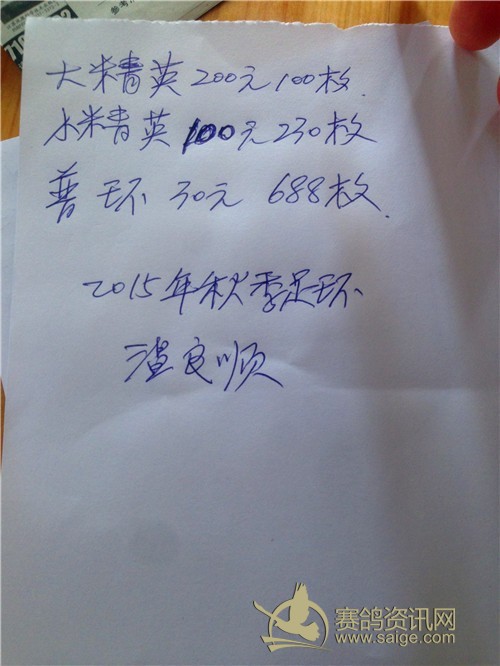 大精英 200元 100枚.
小精英 100元 230枚
普环 30元 688枚.
2015年秋季足环
良顺
赛鸽资讯网
www.saige.com